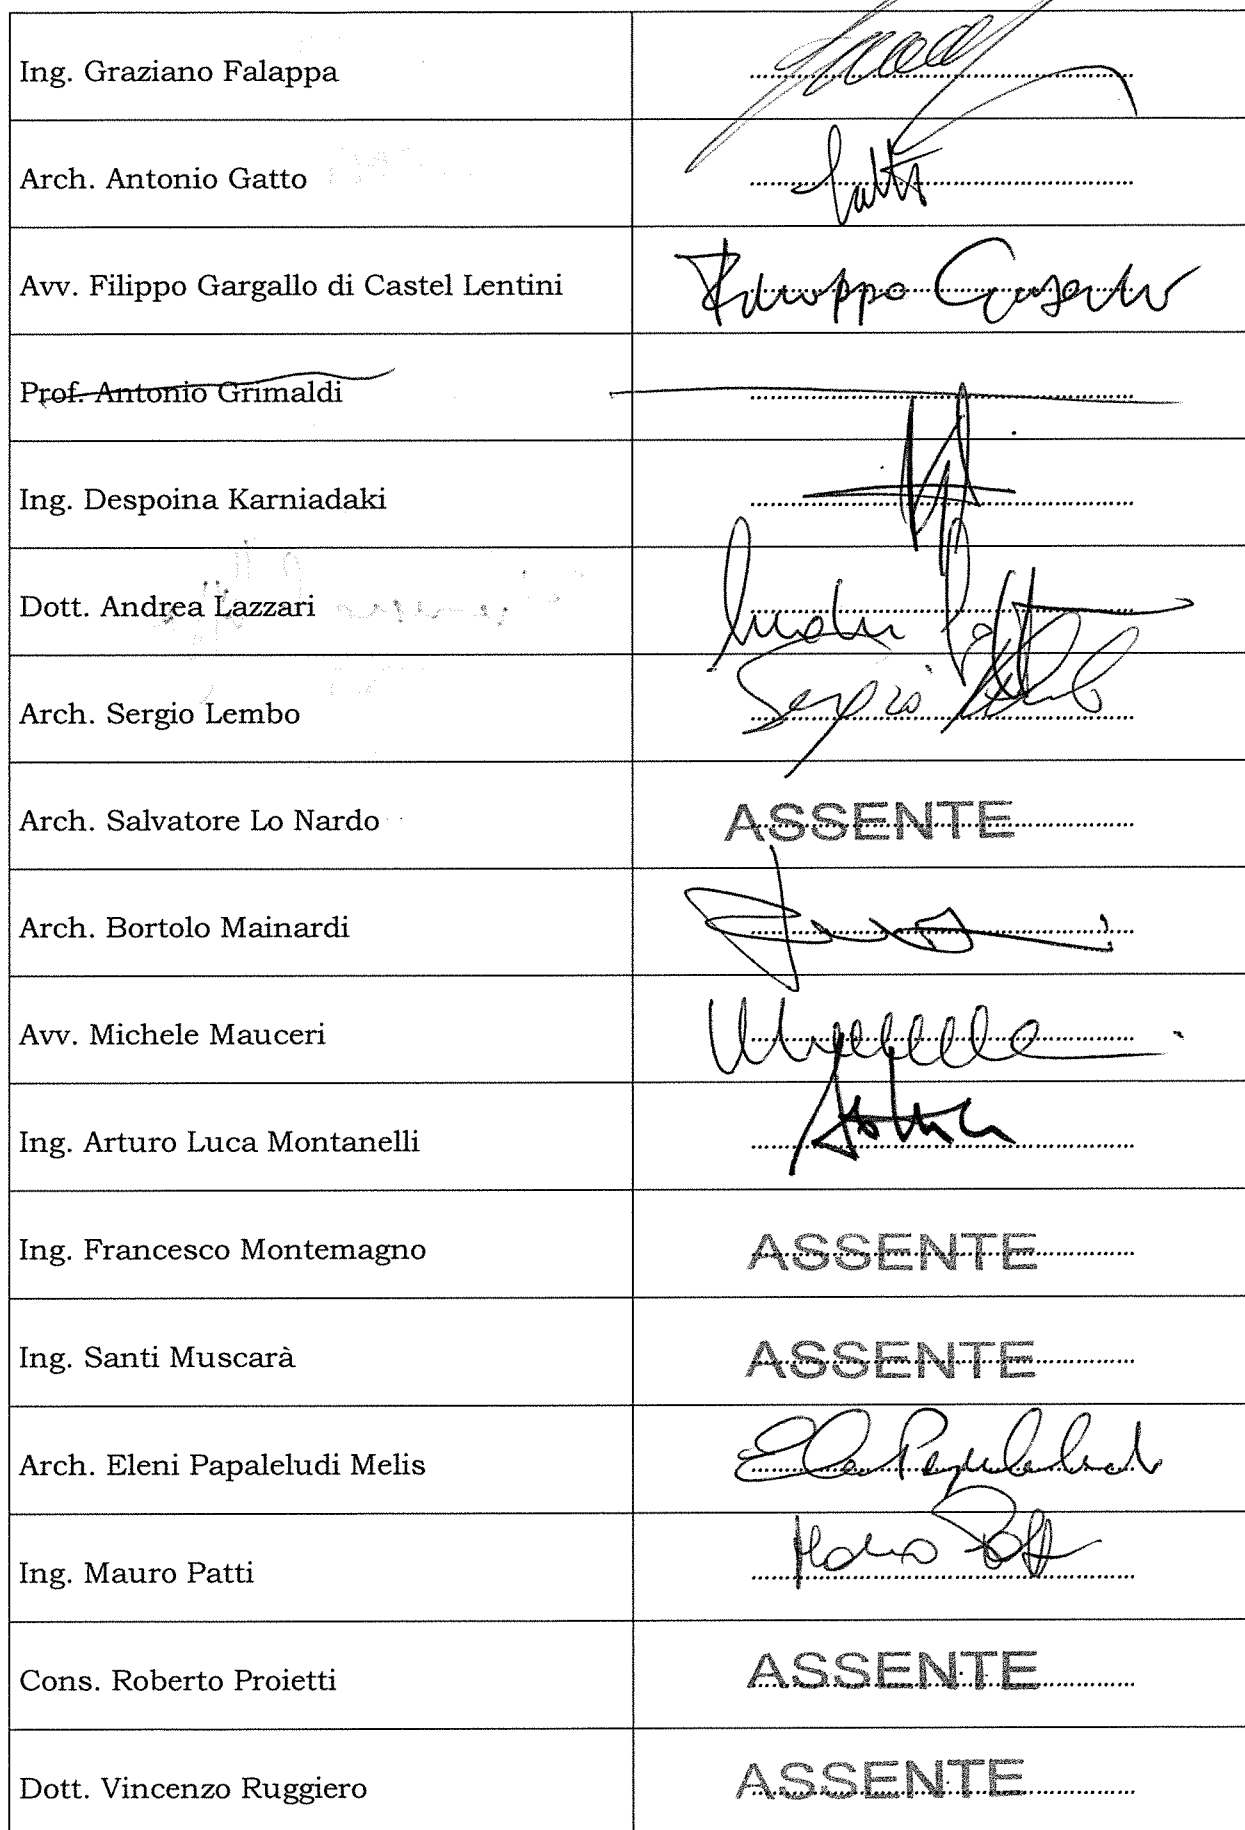 Ing. Graziano Falappa
Arch. Antonio Gatto
Avv. Filippo Gargallo di Castel Lentini
Prof. Antonio Grimaldi
Ing. Despoina Karniadaki
Dott. Andrea Lazzari
Arch. Sergio Lembo
Sergio
Arch. Salvatore Lo Nardo ASSENTE
Arch. Bortolo Mainardi
Avv. Michele Mauceri
Ing. Arturo Luca Montanelli
Ing. Francesco Montemagno ASSENTE
Ing. Santi Muscarà ASSENTE
Arch. Eleni Papaleludi Melis
Ing. Mauro Patti
Cons. Roberto Proietti ASSENTE
Dott. Vincenzo Ruggiero ASSENTE